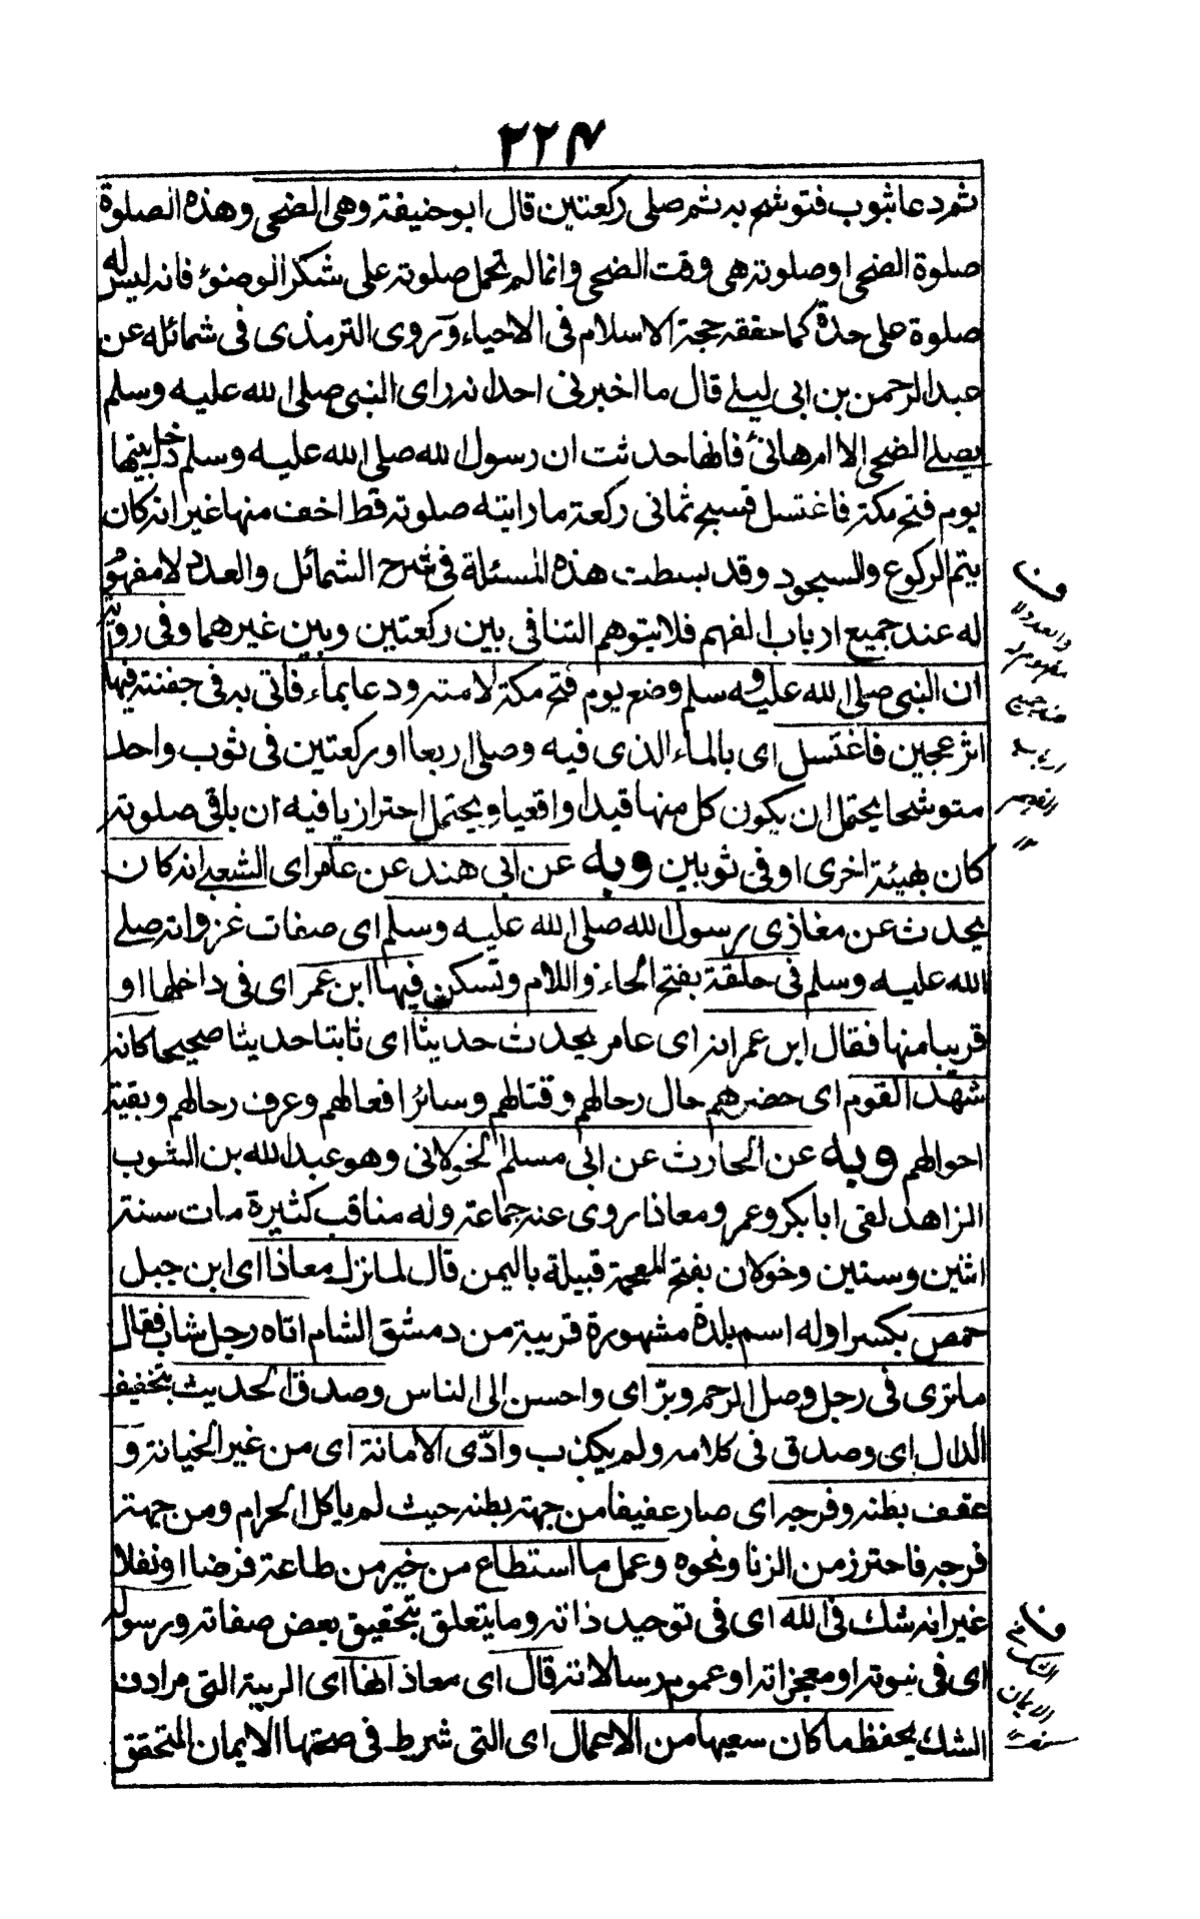 ٢٢٤
ثم دعا بثوب فتوشح به ثم صلى ركعتين قال ابو حنيفة وهى الضحى وهذه الصلوة
صلوة الضحى او صلوته هى وقت الضحى وانما لم تحمل صلوته على شكر الوضوء فانه ليس له
صلوة على حدة كما حققه حجة الاسلام فى الاحياء وروى الترمذى فى شمائله عن
عبد الرحمن بن ابى ليلے قال ما اخبرنى احد انه راى النبى صلى الله عليه وسلم
يصلے الضحى الا ام هانئ فانها حدثت ان رسول الله صلى الله عليه وسلم دخل بيتها
يوم فتح مكة فاغتسل فسبح ثمانى ركعة ما رايته صلوته قط اخف منها غير انه كان
يتم الركوع والسجود وقد بسطت هذه المسئلة فى شرح الشمائل والعدد لا مفهوم
له عند جميع ارباب الفهم فلا يتوهم التنافى بين ركعتين وبين غيرهما وفى رواية
ان النبى صلى الله عليه وسلم وضع يوم فتح مكة لامته ودعا بماء فاتى به فى جفنة فيها
اثر عجين فاغتسل اى بالماء الذى فيه وصلى اربعا او ركعتين فى ثوب واحد
متوشحا يحتمل ان يكون كل منها قيدا واقعيا ويحتمل احترازيا فيه ان باقى صلوته
كان بهيئة اخرى او فى ثوبين وبه عن ابى هند عن عامر اى الشعبے انه كان
يحدث عن مغازى رسول الله صلى الله عليه وسلم اى صفات غزواته صلے
الله عليه وسلم فى حلقة بفتح الحاء واللام وتسكن فيها ابن عمر اى فى داخلها او
قريبا منها فقال ابن عمر انه اى عامر يحدث حديثا اى ثابتا حديثا صحيحا كانه
شهد القوم اى حضرهم حال رحالهم وقتالهم وسائر افعالهم وعرف رحالهم وبقية
احوالهم وبه عن الحارث عن ابى مسلم الخولانى وهو عبد الله بن الثوب
الزاهد لقى ابا بكر وعمر ومعاذا روى عنه جماعة وله مناقب كثيرة مات سنة
اثنين وستين وخولان بفتح المعجمة قبيلة باليمن قال لما نزل معاذ اى ابن جبل
حمص بكسر اوله اسم بلدة مشهورة قريبة من دمشق الشام اتاه رجل شاب فقال
ما ترى فى رجل وصل الرحم وبرّ اى واحسن الى الناس وصدق الحديث بتخفيف
الدال اى وصدق فى كلامه ولم يكذب وادّى الامانة اى من غير الخيانة و
عفف بطنه وفرجه اى صار عفيفا من جهة بطنه حيث لم ياكل الحرام ومن جهة
فرجه فاحترز من الزنا ونحوه وعمل ما استطاع من خير من طاعة فرضا او نفلا
غير انه شك فى الله اى فى توحيد ذاته وما يتعلق بتحقيق بعض صفاته ورسوله
اى فى نبوته او معجزاته او عموم رسالاته قال اى معاذ انها اى الريبة التى مرادف
الشك يحفظ ما كان سعيها من الاعمال اى التى شرط فى صحتها الايمان المتحقق
ف
والعدد لا
مفهوم له
عند جميع
ارباب
الفهم
ف
الشك فى
الايمان